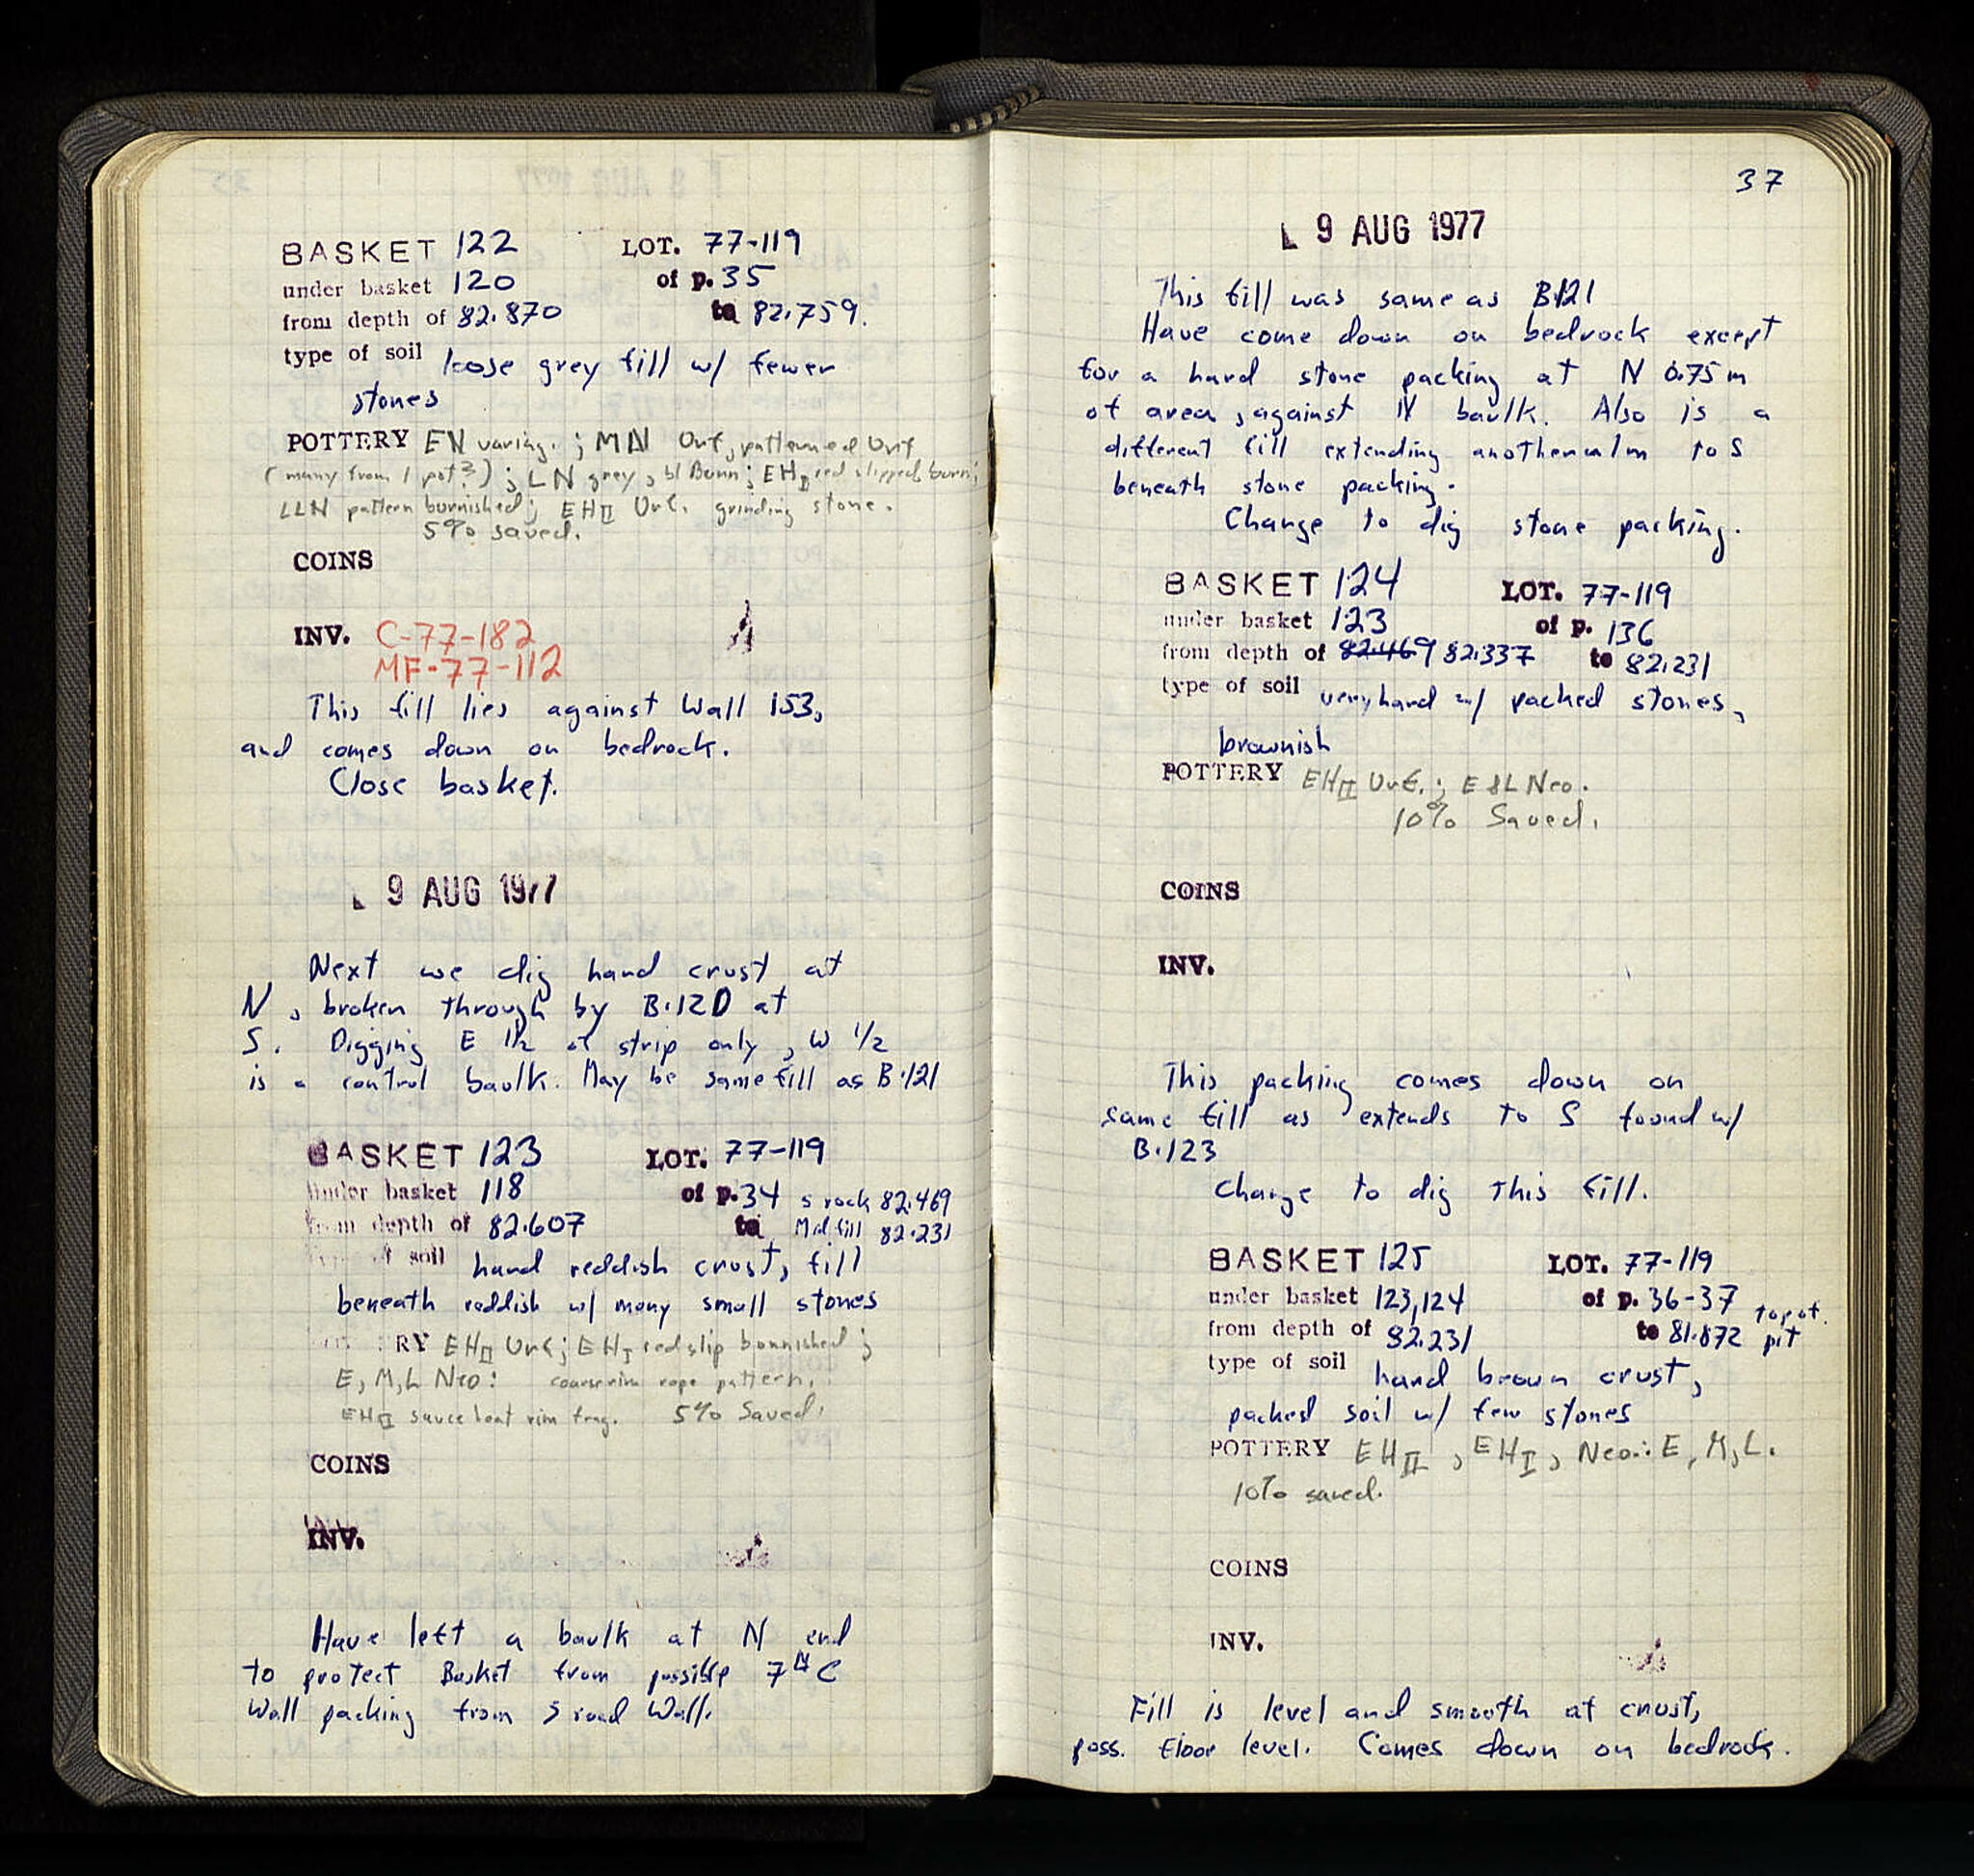 BASKET 122 LOT. 77-119
under basket 120 of p. 35
from depth of 82.870 to 82.759.
type of soil loose grey fill w/ fewer
stones
POTTERY EN varieg. ; MN Urf, patterned Urf
(many from 1 pot?) ; LN grey, bl Burn ; EH II red slipped, burn;
LLN pattern burnished ; EH II Urf. grinding stone.
5% saved.
COINS
INV. C-77-182
MF-77-112
This fill lies against Wall 153,
and comes down on bedrock.
Close basket.
9 AUG 1977
Next we dig hard crust at
N, broken through by B.120 at
S. Digging E 1/2 of strip only, W 1/2
is a control baulk. May be same fill as B.121
BASKET 123 LOT. 77-119
under basket 118 of p. 34 S rock 82.469
from depth of 82.607 to Mid fill 82.231
type of soil hard reddish crust, fill
beneath reddish w/ many small stones
RY EH II Urf ; EH I red slip burnished ;
E, M, L Neo: coarse rim rope pattern,
EH II sauceboat rim frag. 5% Saved.
COINS
INV.
Have left a baulk at N end
to protect Basket from possible 7th C
Wall packing from S road Wall.
37
9 AUG 1977
This fill was same as B.121
Have come down on bedrock except
for a hard stone packing at N 0.75 m
of area, against N baulk. Also is a
different fill extending another 1m to S
beneath stone packing.
Change to dig stone packing.
BASKET 124 LOT. 77-119
under basket 123 of p. 136
from depth of 82.469 82.337 to 82.231
type of soil very hard w/ packed stones,
brownish
POTTERY EH II Urf. ; E & L Neo.
10% Saved.
COINS
INV.
This packing comes down on
same fill as extends to S found w/
B.123
Change to dig this fill.
BASKET 125 LOT. 77-119
under basket 123, 124 of p. 36-37 top of
from depth of 82.231 to 81.872 pit
type of soil hard brown crust,
packed soil w/ few stones
POTTERY EH II, EH I, Neo.: E, M, L.
10% saved.
COINS
INV.
Fill is level and smooth at crust,
poss. floor level. Comes down on bedrock.